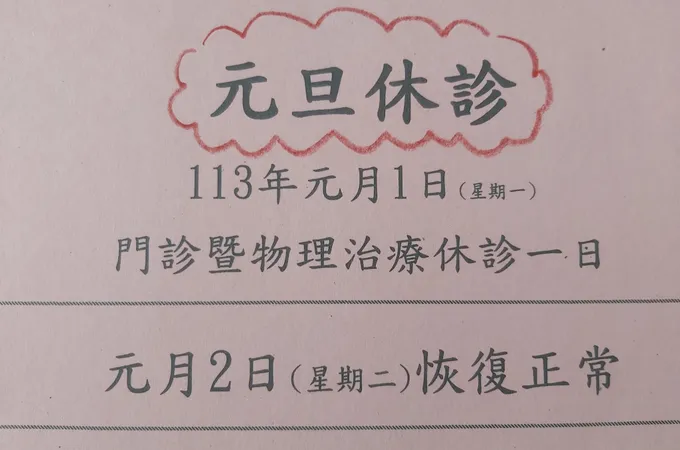 元旦休診
113年元月1日(星期一)
門診暨物理治療休診一日
元月2日(星期二)恢復正常